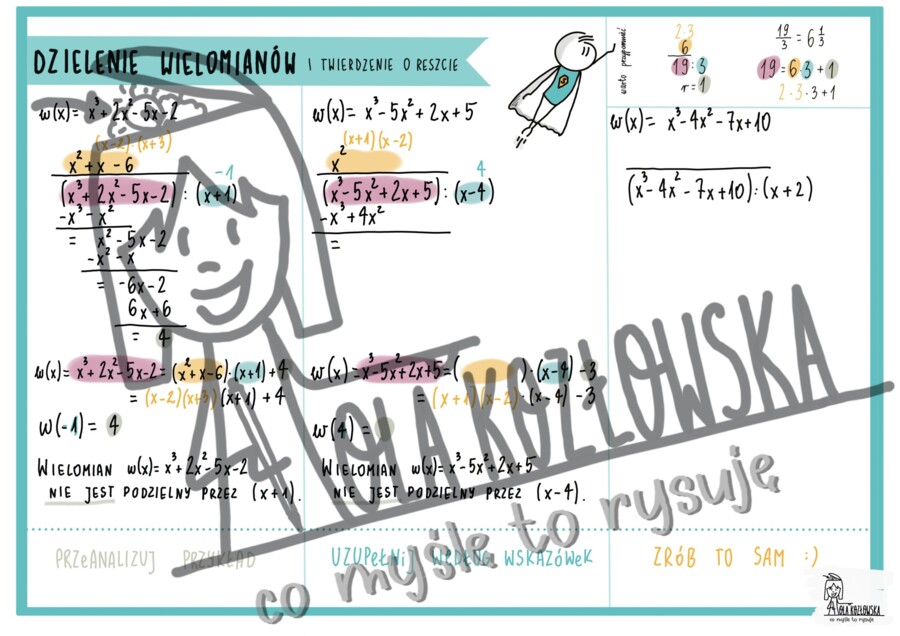 DZIELENIE WIELOMIANÓW I TWIERDZENIE O RESZCIE
warto przypomnieć
2·3
6
19:3
r=1
19/3 = 6 1/3
19=6·3+1
2·3·3+1
w(x)= x³+2x²-5x-2
(x-2)·(x+3)
x²+x-6
-1
(x³+2x²-5x-2):(x+1)
-x³-x²
= x²-5x-2
-x²-x
= -6x-2
6x+6
= 4
w(x)= x³+2x²-5x-2=(x²+x-6)·(x+1)+4
= (x-2)(x+3)(x+1)+4
w(-1)= 4
WIELOMIAN w(x)=x³+2x²-5x-2
NIE JEST PODZIELNY PRZEZ (x+1).
PRZEANALIZUJ PRZYKŁAD
w(x)= x³-5x²+2x+5
(x+1)(x-2)
x²
4
(x³-5x²+2x+5):(x-4)
-x³+4x²
=
w(x)=x³-5x²+2x+5=( )·(x-4)-3
= (x+1)(x-2)·(x-4)-3
w(4)=
WIELOMIAN w(x)=x³-5x²+2x+5
NIE JEST PODZIELNY PRZEZ (x-4).
UZUPEŁNIJ WEDŁUG WSKAZÓWEK
w(x)= x³-4x²-7x+10
(x³-4x²-7x+10):(x+2)
ZRÓB TO SAM :)
OLA KOZŁOWSKA
co myślę to rysuję
OLA KOZŁOWSKA
co myślę to rysuję